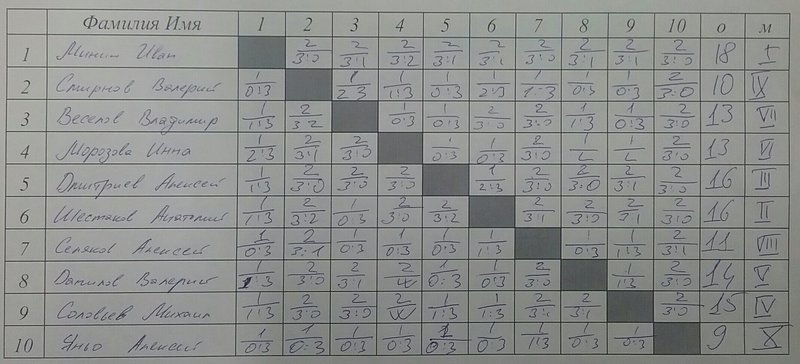 Фамилия Имя 1 2 3 4 5 6 7 8 9 10 о м
1 Минин Иван 2 3:0 2 3:1 2 3:2 2 3:1 2 3:1 2 3:0 2 3:1 2 3:1 2 3:0 18 I
2 Смирнов Валерий 1 0:3 1 2:3 1 1:3 1 0:3 1 2:3 1 1:3 1 0:3 1 0:3 2 3:0 10 IX
3 Веселов Владимир 1 1:3 2 3:2 1 0:3 1 0:3 2 3:0 2 3:0 1 1:3 1 0:3 2 3:0 13 VII
4 Морозова Инна 1 2:3 2 3:1 2 3:0 1 0:3 1 0:3 2 3:0 1 L 1 L 2 3:0 13 VI
5 Дмитриев Алексей 1 1:3 2 3:0 2 3:0 2 3:0 1 2:3 2 3:0 2 3:0 2 3:1 2 3:0 16 III
6 Шестаков Анатолий 1 1:3 2 3:2 1 0:3 2 3:0 2 3:2 2 3:1 2 3:0 2 3:1 2 3:0 16 II
7 Селяков Алексей 1 0:3 2 3:1 1 0:3 1 0:3 1 0:3 1 1:3 1 0:3 1 1:3 2 3:1 11 VIII
8 Данилов Валерий 1 1:3 2 3:0 2 3:1 2 W 1 0:3 1 0:3 2 3:0 1 1:3 2 3:0 14 V
9 Соловьев Михаил 1 1:3 2 3:0 2 3:0 2 W 1 1:3 1 1:3 2 3:1 2 3:1 2 3:0 15 IV
10 Яньо Алексей 1 0:3 1 0:3 1 0:3 1 0:3 1 0:3 1 0:3 1 1:3 1 0:3 1 0:3 9 X